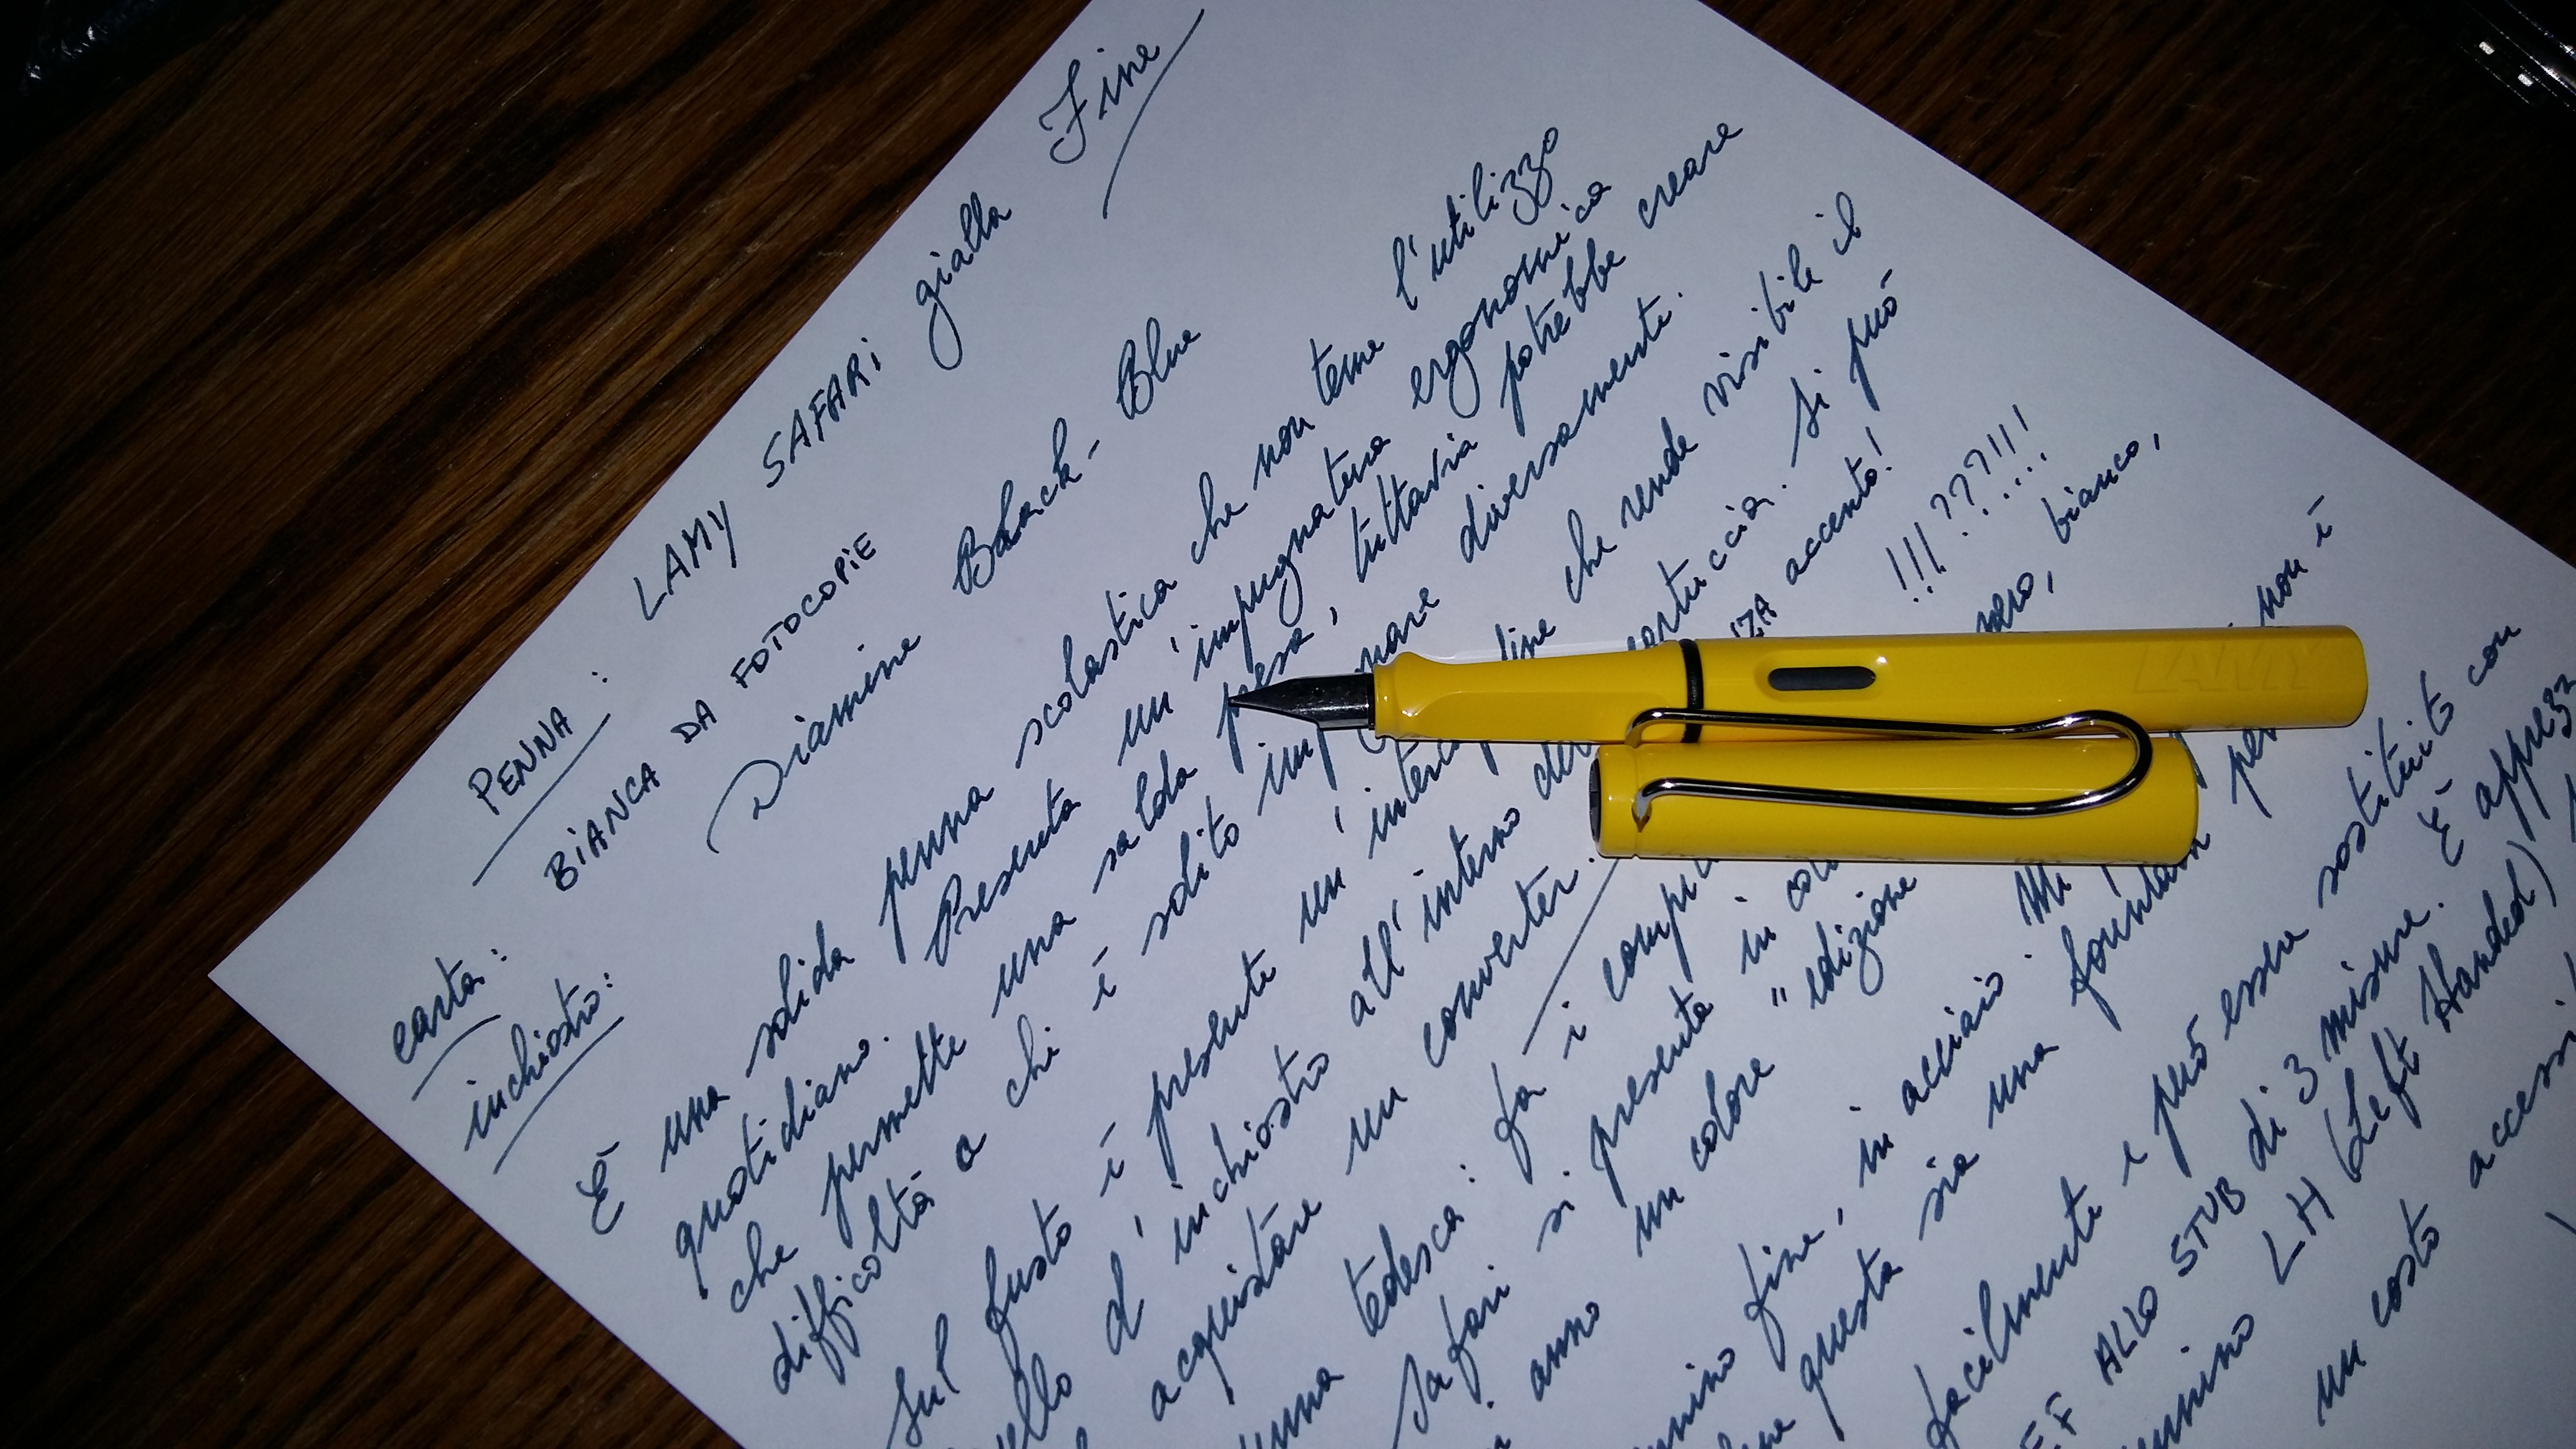 PENNA: LAMY SAFARI gialla Fine
carta: BIANCA DA FOTOCOPIE
inchiostro: Diamine Black-Blue
È una solida penna scolastica che non teme l'utilizzo
quotidiano. Presenta un'impugnatura ergonomica
che permette una salda presa, tuttavia potrebbe creare
difficoltà a chi è solito impugnare diversamente.
Sul fusto è presente un'intercapedine che rende visibile il
d'inchiostro all'interno della cartuccia. Si può
acquistare un converter.
accento!
tedesca: fa i !!!???!!!
Safari si presenta in nero, bianco,
anno un colore "edizione
fine, in acciaio. Mi non è
questa sia una fountain
facilmente e può essere sostituito con
EF ALLO STUB di 3 misure. È
LH (Left Handed)
un costo
LAMY